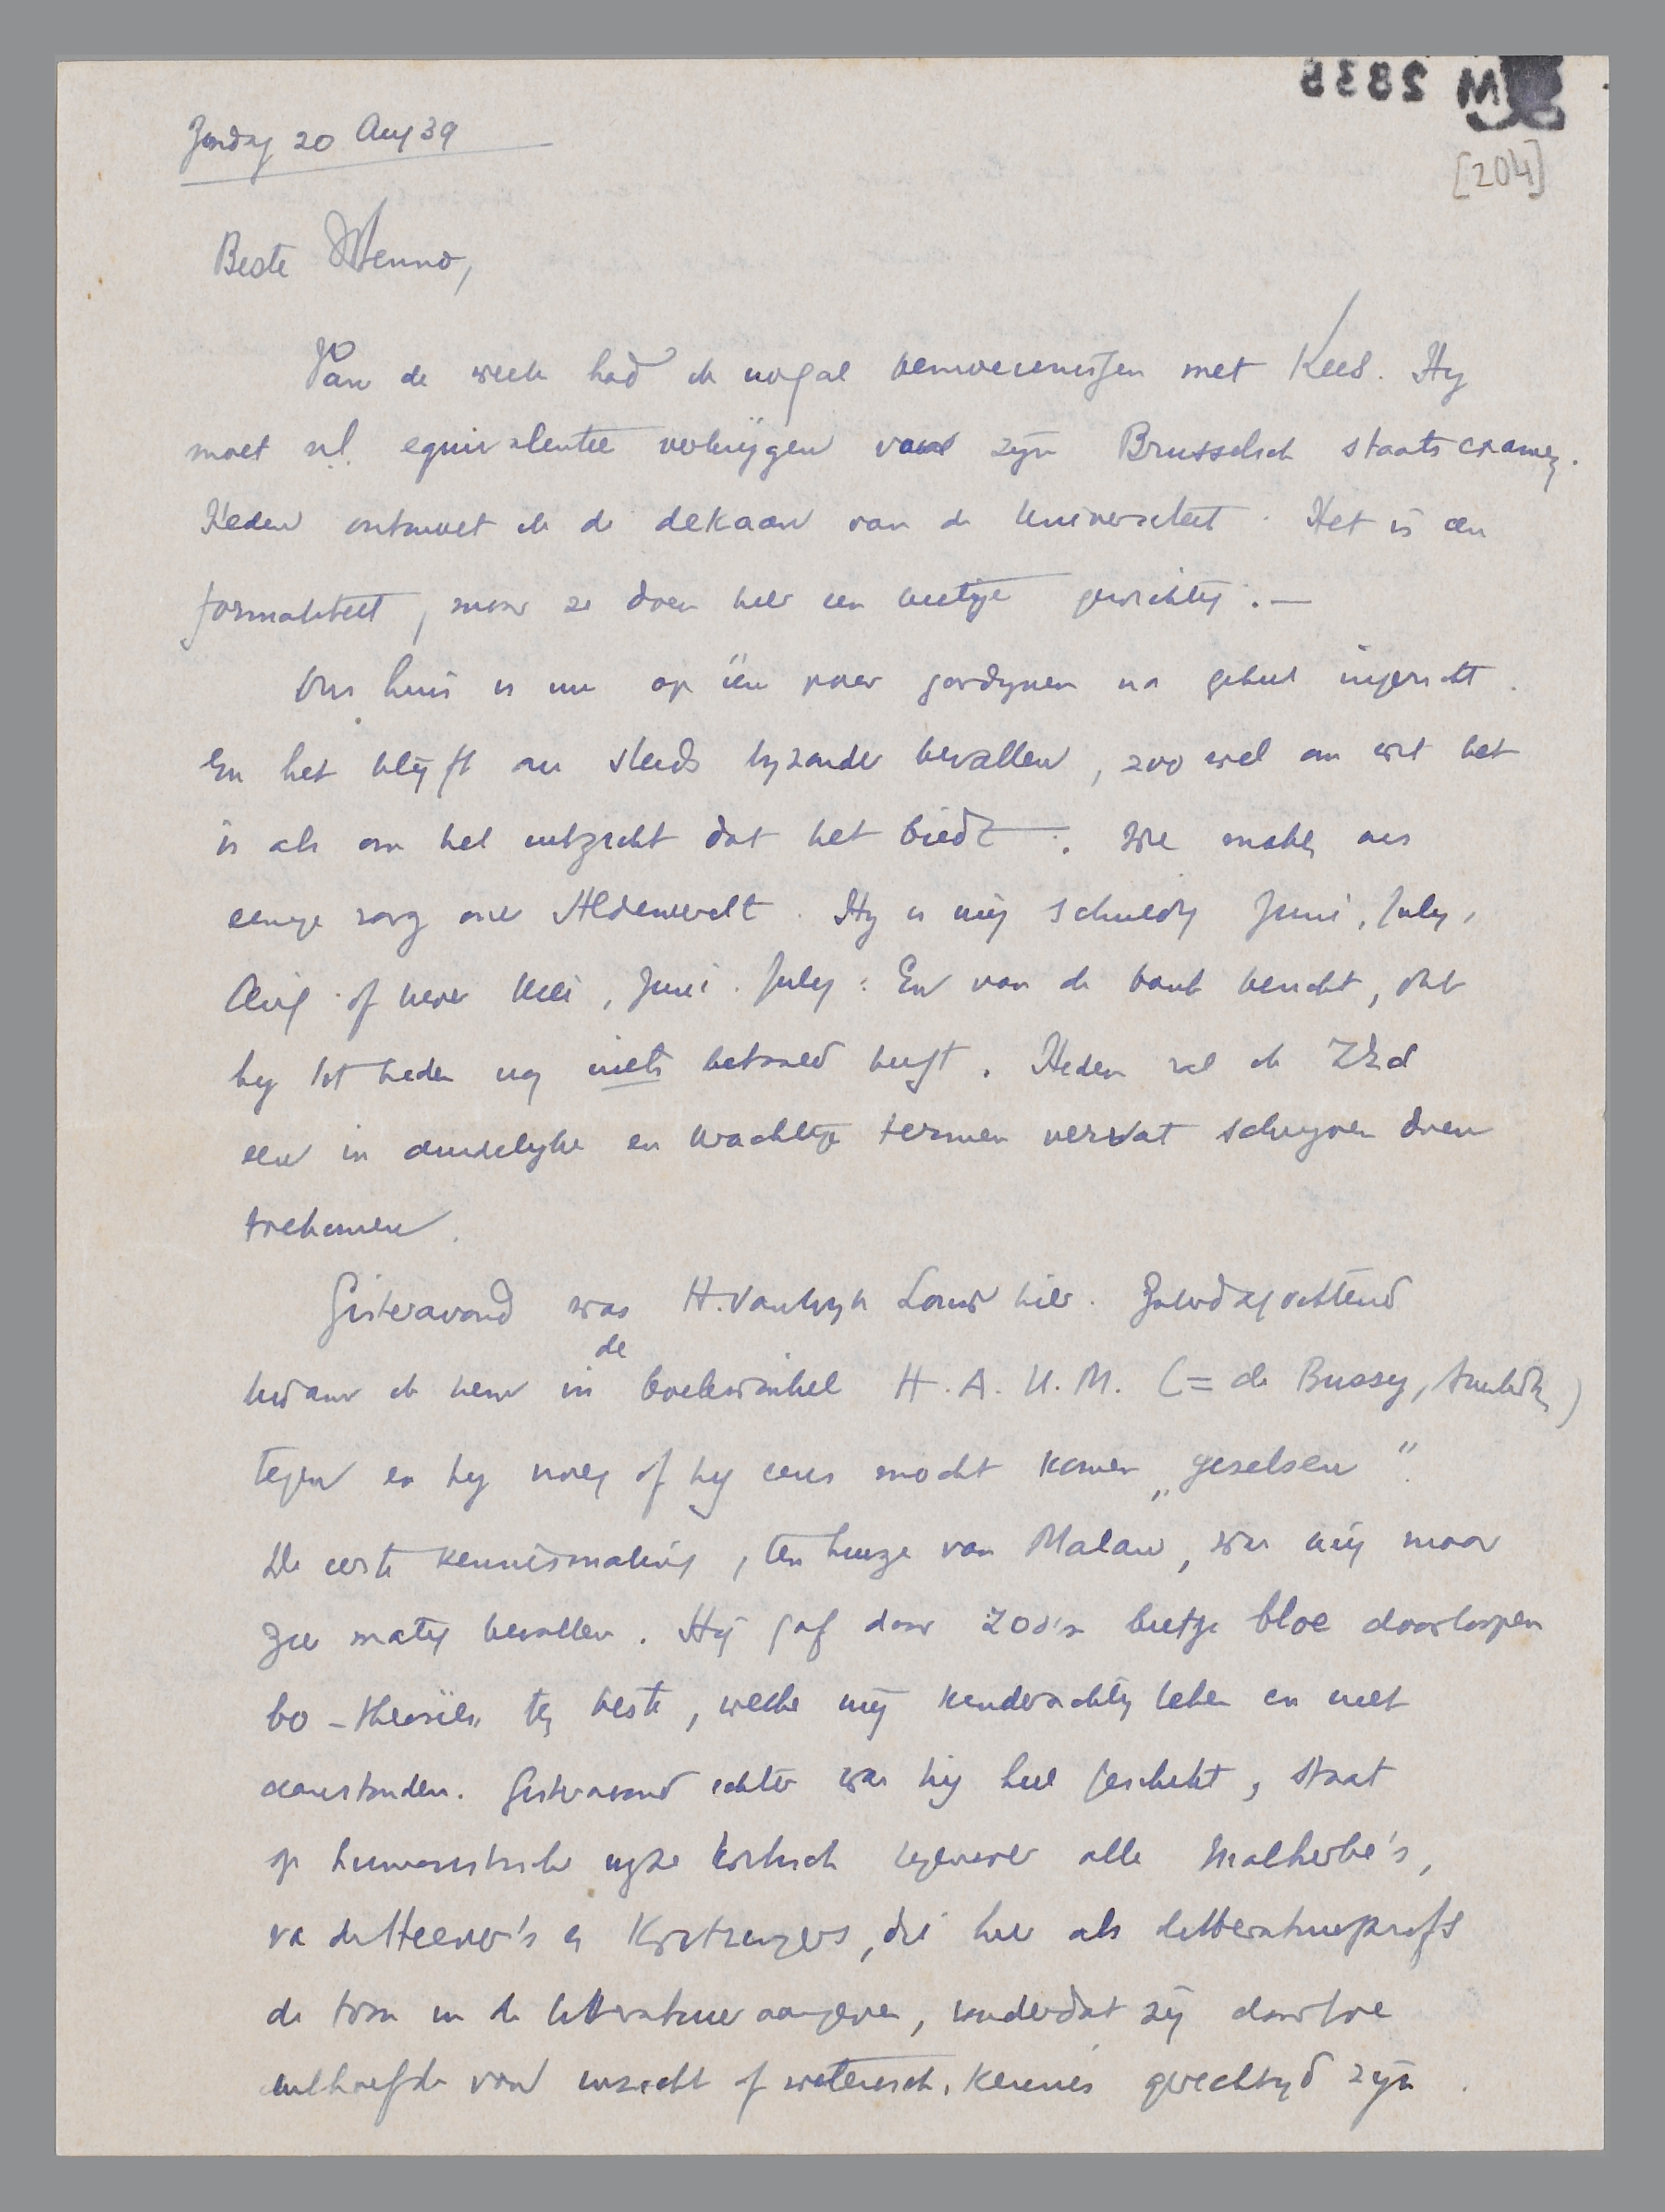 M 2835
[204]
Zondag 20 Aug 39
Beste Menno,
Van de week had ik nogal bemoeienissen met Kees. Hij
moet nl. equivalentie verkrijgen van zijn Brusselsch staatsexamen.
Heden ontmoet ik de dekaan van de Universiteit. Het is een
formaliteit, maar ze doen hier een beetje gewichtig. —
Ons huis is nu op één paar gordijnen na geheel ingericht.
En het blijft ons steeds byzonder bevallen, zoowel om wat het
is als om het uitzicht dat het biedt. We maken ons
eenige zorg over Aldewerelt. Hij is mij schuldig Juni, July,
Aug of liever Mei, Juni, July: En van de bank bericht, dat
hij tot heden nog niets betaald heeft. Heden zal ik
een in duidelijke en krachtige termen vervat schrijven doen
toekomen.
Gisteravond was H. van Wyk Louw hier. Zaterdagochtend
kwam ik hem in de boekwinkel H.A.U.M. (= de Bussy, Amsterdam)
tegen en hij vroeg of hij eens mocht komen „geselsen”.
De eerste kennismaking, ten huize van Malan, was mij maar
zeer matig bevallen. Hij gaf daar zoo'n beetje bloe doorloopen
bo-theorieën ten beste, welke mij kinderachtig leken en niet
aanstonden. Gisteravond echter was hij heel geschikt, staat
op humoristische wijze kritisch tegenover alle Malherbe's,
v.d. Heever's en Kritzingers, die hier als litteratuurprofs
de toon in de litteratuur aangeven, zonder dat zij daartoe
uit hoofde van inzicht of wetensch. kennis gerechtigd zijn.